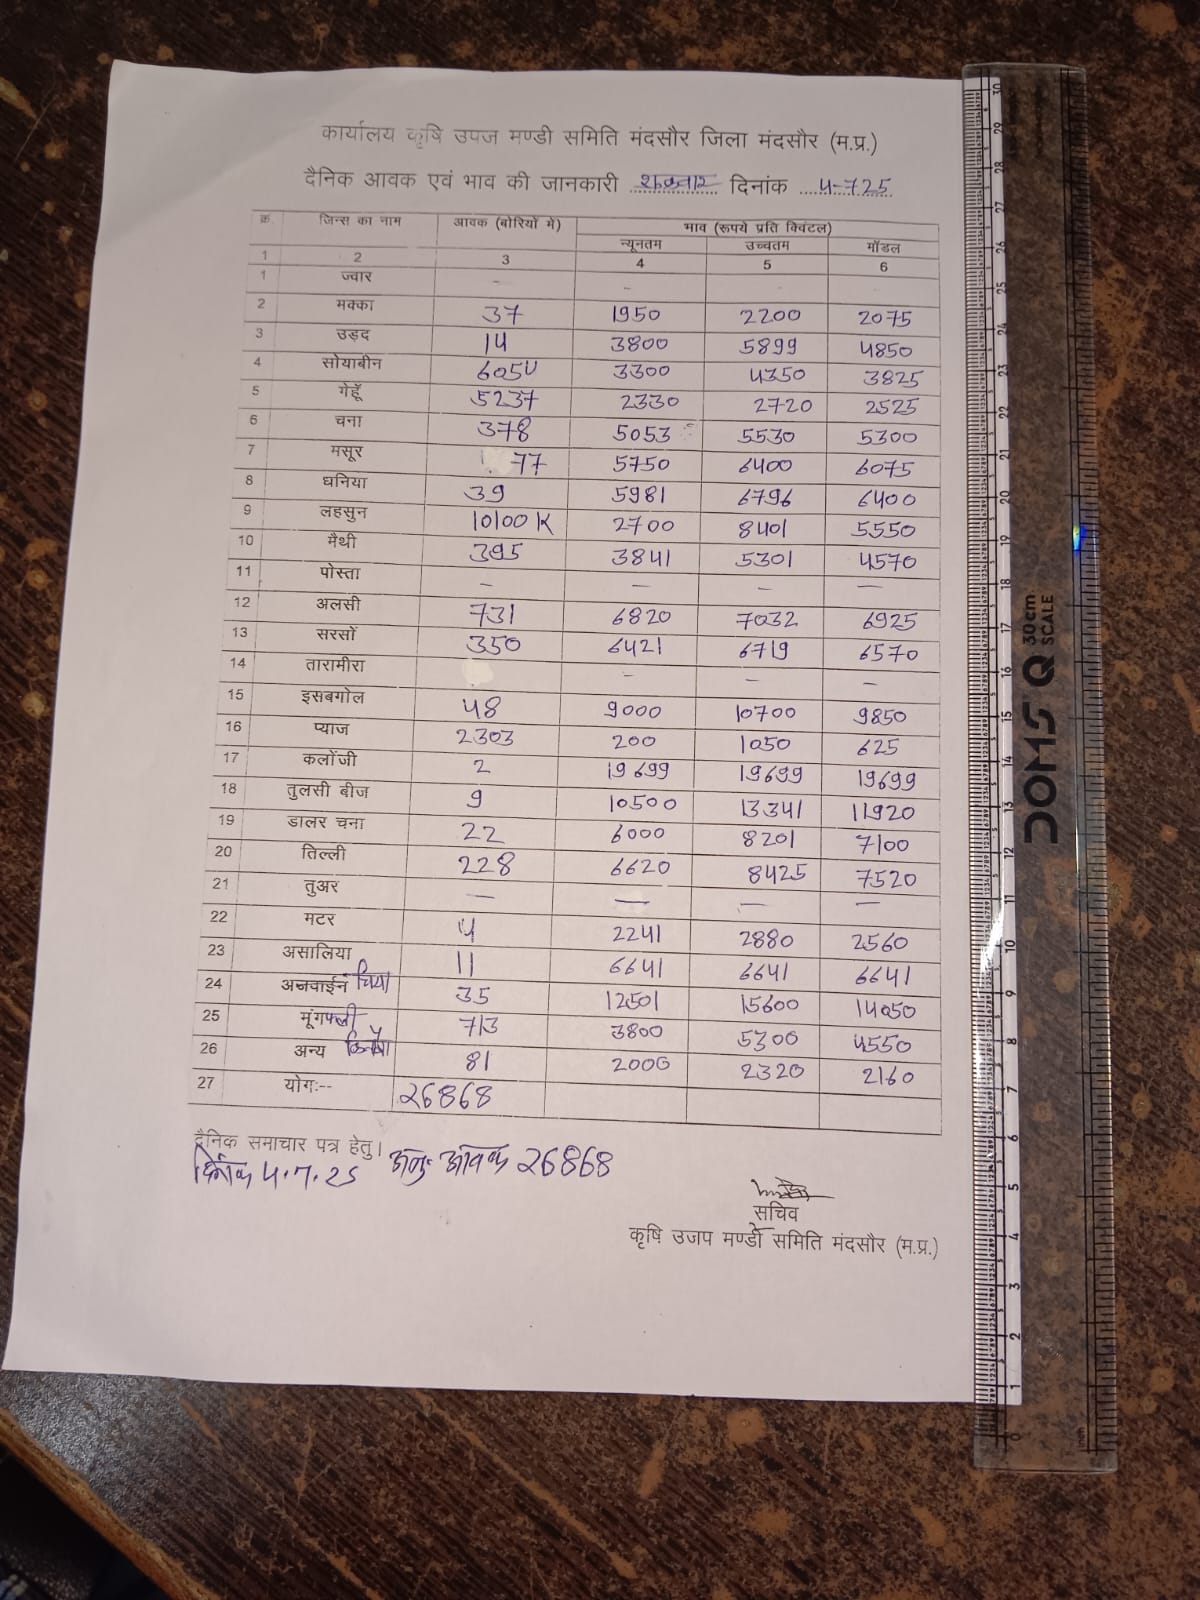 कार्यालय कृषि उपज मण्डी समिति मंदसौर जिला मंदसौर (म.प्र.)
दैनिक आवक एवं भाव की जानकारी शुक्रवार दिनांक 4-725
क्र. जिन्स का नाम आवक (बोरियों में) भाव (रूपये प्रति क्विंटल)
न्यूनतम उच्चतम मॉडल
1 2 3 4 5 6
1 ज्वार - - - -
2 मक्का 37 1950 2200 2075
3 उड़द 14 3800 5899 4850
4 सोयाबीन 6054 3300 4350 3825
5 गेहूँ 5237 2330 2720 2525
6 चना 378 5053 5530 5300
7 मसूर 77 5750 6400 6075
8 धनिया 39 5981 6796 6400
9 लहसुन 10100 K 2700 8401 5550
10 मैथी 395 3841 5301 4570
11 पोस्ता - - - -
12 अलसी 731 6820 7032 6925
13 सरसों 350 6421 6719 6570
14 तारामीरा - - -
15 इसबगोल 48 9000 10700 9850
16 प्याज 2303 200 1050 625
17 कलोंजी 2 19699 19699 19699
18 तुलसी बीज 9 10500 13341 11920
19 डालर चना 22 6000 8201 7100
20 तिल्ली 228 6620 8425 7520
21 तुअर - - - -
22 मटर 4 2241 2880 2560
23 असालिया 11 6641 6641 6641
24 अजवाईन चिया 35 12501 15600 14050
25 मूंगफली 713 3800 5300 4550
26 अन्य 81 2000 2320 2160
27 योगः-- 26868
दैनिक समाचार पत्र हेतु।
दिनांक 4.7.25 अनु. आवक 26868
सचिव
कृषि उजप मण्डी समिति मंदसौर (म.प्र.)
DOMS Q 30cm SCALE